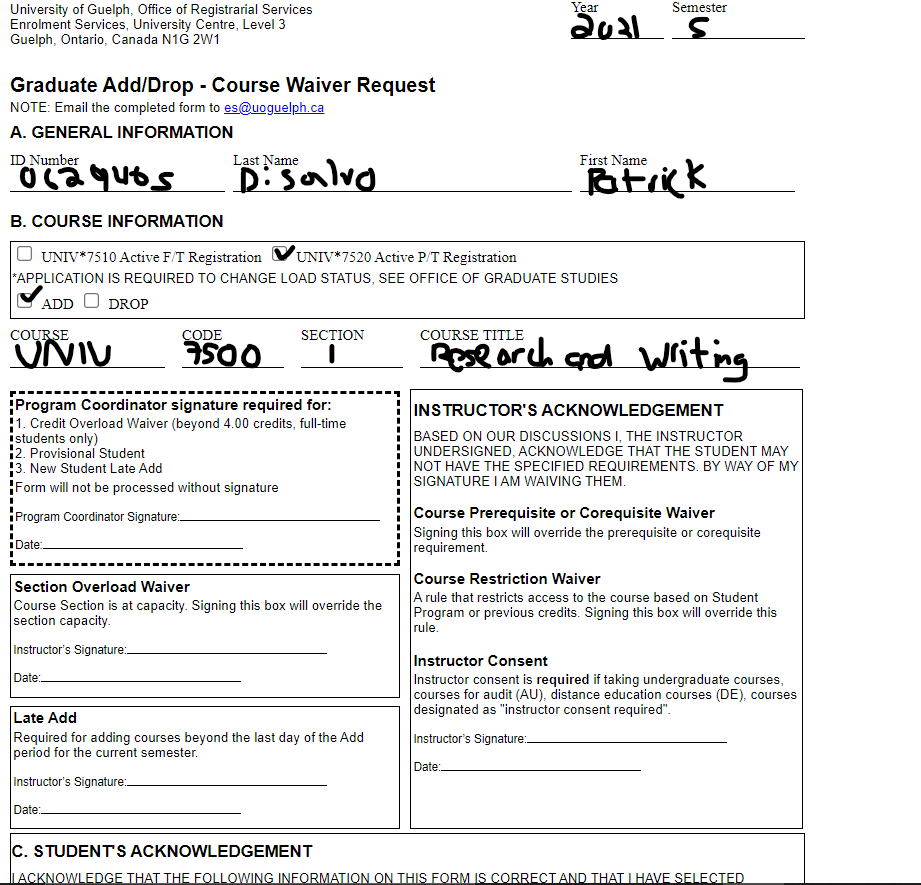 University of Guelph, Office of Registrarial Services
Enrolment Services, University Centre, Level 3
Guelph, Ontario, Canada N1G 2W1
Year Semester
2021 5
Graduate Add/Drop - Course Waiver Request
NOTE: Email the completed form to es@uoguelph.ca
A. GENERAL INFORMATION
ID Number Last Name First Name
0629465 Disalvo Patrick
B. COURSE INFORMATION
UNIV*7510 Active F/T Registration UNIV*7520 Active P/T Registration
*APPLICATION IS REQUIRED TO CHANGE LOAD STATUS, SEE OFFICE OF GRADUATE STUDIES
ADD DROP
COURSE CODE SECTION COURSE TITLE
UNIV 7500 1 Research and Writing
Program Coordinator signature required for:
1. Credit Overload Waiver (beyond 4.00 credits, full-time
students only)
2. Provisional Student
3. New Student Late Add
Form will not be processed without signature
Program Coordinator Signature:
Date:
Section Overload Waiver
Course Section is at capacity. Signing this box will override the
section capacity.
Instructor's Signature:
Date:
Late Add
Required for adding courses beyond the last day of the Add
period for the current semester.
Instructor's Signature:
Date:
INSTRUCTOR'S ACKNOWLEDGEMENT
BASED ON OUR DISCUSSIONS I, THE INSTRUCTOR
UNDERSIGNED, ACKNOWLEDGE THAT THE STUDENT MAY
NOT HAVE THE SPECIFIED REQUIREMENTS. BY WAY OF MY
SIGNATURE I AM WAIVING THEM.
Course Prerequisite or Corequisite Waiver
Signing this box will override the prerequisite or corequisite
requirement.
Course Restriction Waiver
A rule that restricts access to the course based on Student
Program or previous credits. Signing this box will override this
rule.
Instructor Consent
Instructor consent is required if taking undergraduate courses,
courses for audit (AU), distance education courses (DE), courses
designated as "instructor consent required".
Instructor's Signature:
Date:
C. STUDENT'S ACKNOWLEDGEMENT
I ACKNOWLEDGE THAT THE FOLLOWING INFORMATION ON THIS FORM IS CORRECT AND THAT I HAVE SELECTED